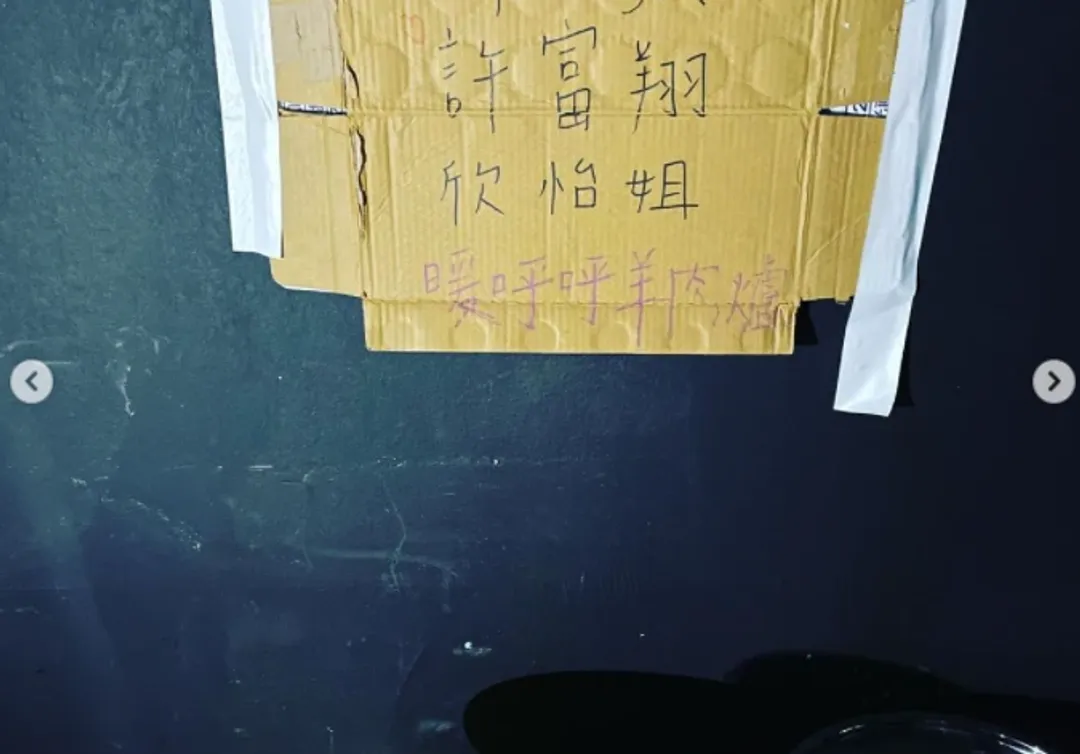 許富翔
欣怡姐
暖呼呼羊肉爐